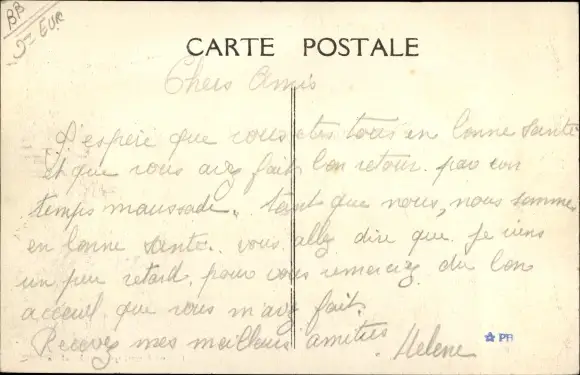 BB
CARTE POSTALE
Chers Amis
J'espère que vous etes tous en bonne santé
et que vous avez fait bon retour. par un
temps maussade. tant que nous, nous sommes
en bonne santé. vous allez dire que je viens
un peu retard. pour vous remerciez du bon
acceuil que vous m'avez fait.
Recevez mes meilleurs amitiés
Helene
PB